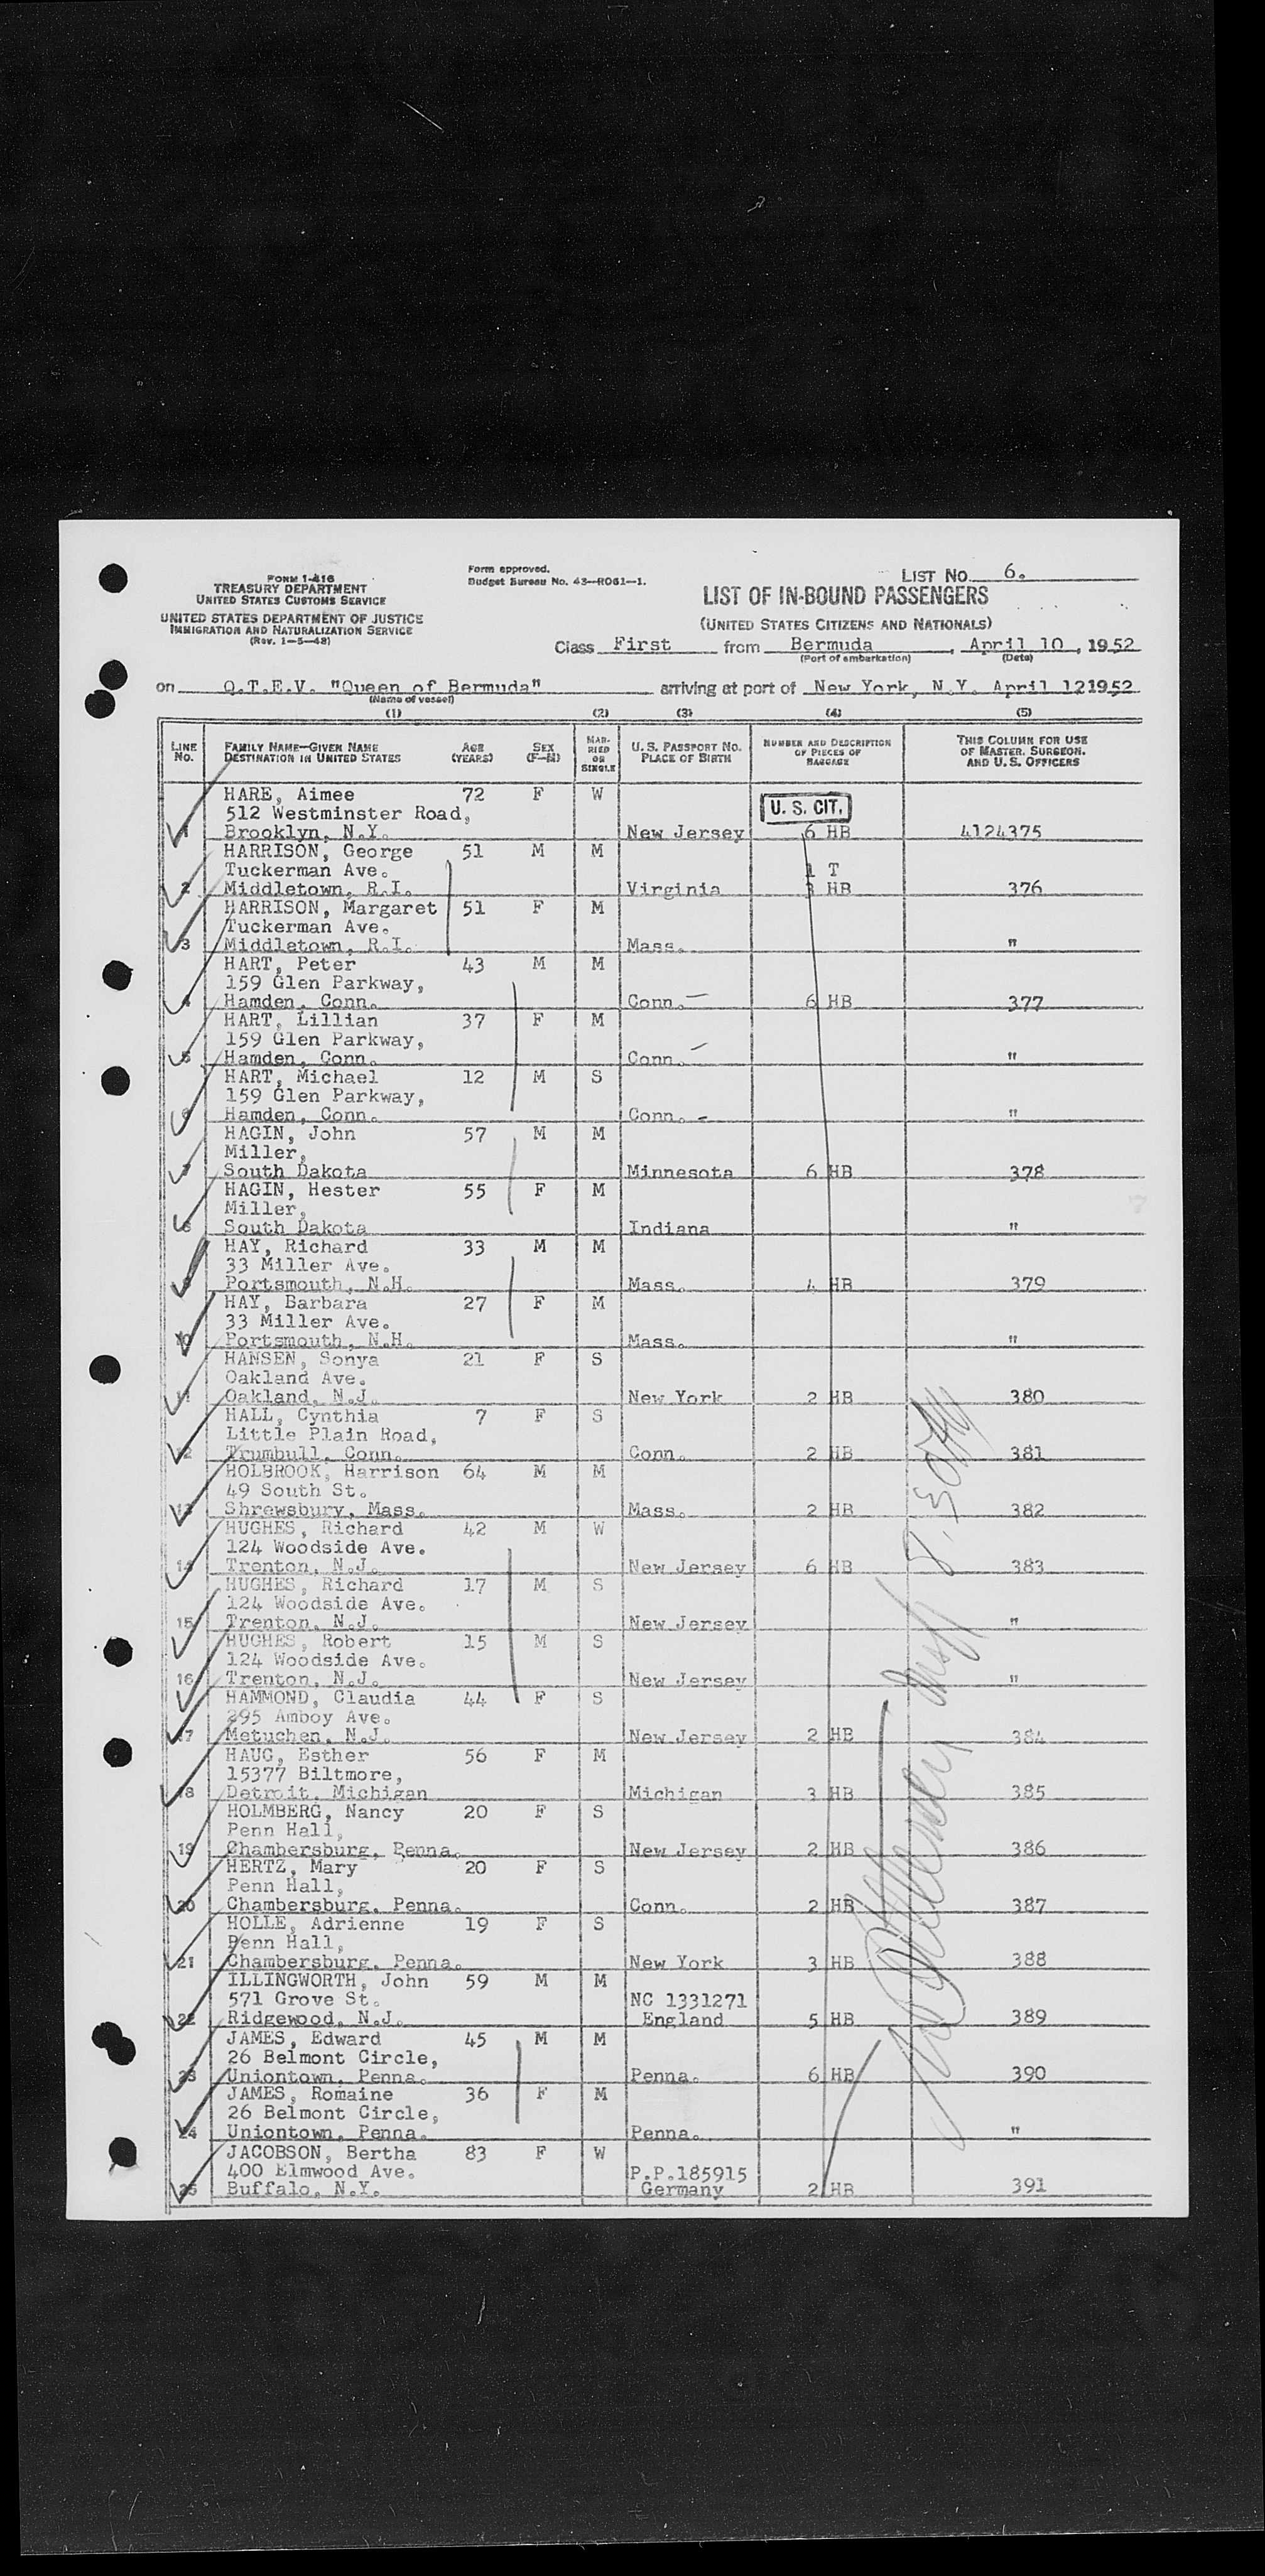 FORM I-416
TREASURY DEPARTMENT
UNITED STATES CUSTOMS SERVICE
UNITED STATES DEPARTMENT OF JUSTICE
IMMIGRATION AND NATURALIZATION SERVICE
(Rev. 1-5-48)
Form approved.
Budget Bureau No. 43-R061-1.
LIST NO. 6.
LIST OF IN-BOUND PASSENGERS
(UNITED STATES CITIZENS AND NATIONALS)
Class First from Bermuda, April 10, 1952
(Port of embarkation) (Date)
on Q.T.E.V. "Queen of Bermuda" arriving at port of New York, N.Y. April 12 1952
(Name of vessel)
(1) (2) (3) (4) (5)
LINE NO. FAMILY NAME—GIVEN NAME DESTINATION IN UNITED STATES AGE (YEARS) SEX (F—M) MARRIED OR SINGLE U. S. PASSPORT NO. PLACE OF BIRTH NUMBER AND DESCRIPTION OF PIECES OF BAGGAGE THIS COLUMN FOR USE OF MASTER, SURGEON, AND U. S. OFFICERS
HARE, Aimee 72 F W
512 Westminster Road, U. S. CIT.
1 Brooklyn, N.Y. New Jersey 6 HB 4124375
HARRISON, George 51 M M
Tuckerman Ave. 1 T
2 Middletown, R.I. Virginia 3 HB 376
HARRISON, Margaret 51 F M
Tuckerman Ave.
3 Middletown, R.I. Mass. "
HART, Peter 43 M M
159 Glen Parkway,
4 Hamden, Conn. Conn. 6 HB 377
HART, Lillian 37 F M
159 Glen Parkway,
5 Hamden, Conn. Conn. "
HART, Michael 12 M S
159 Glen Parkway,
6 Hamden, Conn. Conn. "
HAGIN, John 57 M M
Miller,
7 South Dakota Minnesota 6 HB 378
HAGIN, Hester 55 F M
Miller,
8 South Dakota Indiana "
HAY, Richard 33 M M
33 Miller Ave.
9 Portsmouth, N.H. Mass. 4 HB 379
HAY, Barbara 27 F M
33 Miller Ave.
10 Portsmouth, N.H. Mass. "
HANSEN, Sonya 21 F S
Oakland Ave.
11 Oakland, N.J. New York 2 HB 380
HALL, Cynthia 7 F S
Little Plain Road,
12 Trumbull, Conn. Conn. 2 HB 381
HOLBROOK, Harrison 64 M M
49 South St.
13 Shrewsbury, Mass. Mass. 2 HB 382
HUGHES, Richard 42 M W
124 Woodside Ave.
14 Trenton, N.J. New Jersey 6 HB 383
HUGHES, Richard 17 M S
124 Woodside Ave.
15 Trenton, N.J. New Jersey "
HUGHES, Robert 15 M S
124 Woodside Ave.
16 Trenton, N.J. New Jersey "
HAMMOND, Claudia 44 F S
295 Amboy Ave.
17 Metuchen, N.J. New Jersey 2 HB 384
HAUG, Esther 56 F M
15377 Biltmore,
18 Detroit, Michigan Michigan 3 HB 385
HOLMBERG, Nancy 20 F S
Penn Hall,
19 Chambersburg, Penna. New Jersey 2 HB 386
HERTZ, Mary 20 F S
Penn Hall,
20 Chambersburg, Penna. Conn. 2 HB 387
HOLLE, Adrienne 19 F S
Penn Hall,
21 Chambersburg, Penna. New York 3 HB 388
ILLINGWORTH, John 59 M M
571 Grove St. NC 1331271
22 Ridgewood, N.J. England 5 HB 389
JAMES, Edward 45 M M
26 Belmont Circle,
23 Uniontown, Penna. Penna. 6 HB 390
JAMES, Romaine 36 F M
26 Belmont Circle,
24 Uniontown, Penna. Penna. "
JACOBSON, Bertha 83 F W
400 Elmwood Ave. P.P.185915
25 Buffalo, N.Y. Germany 2 HB 391